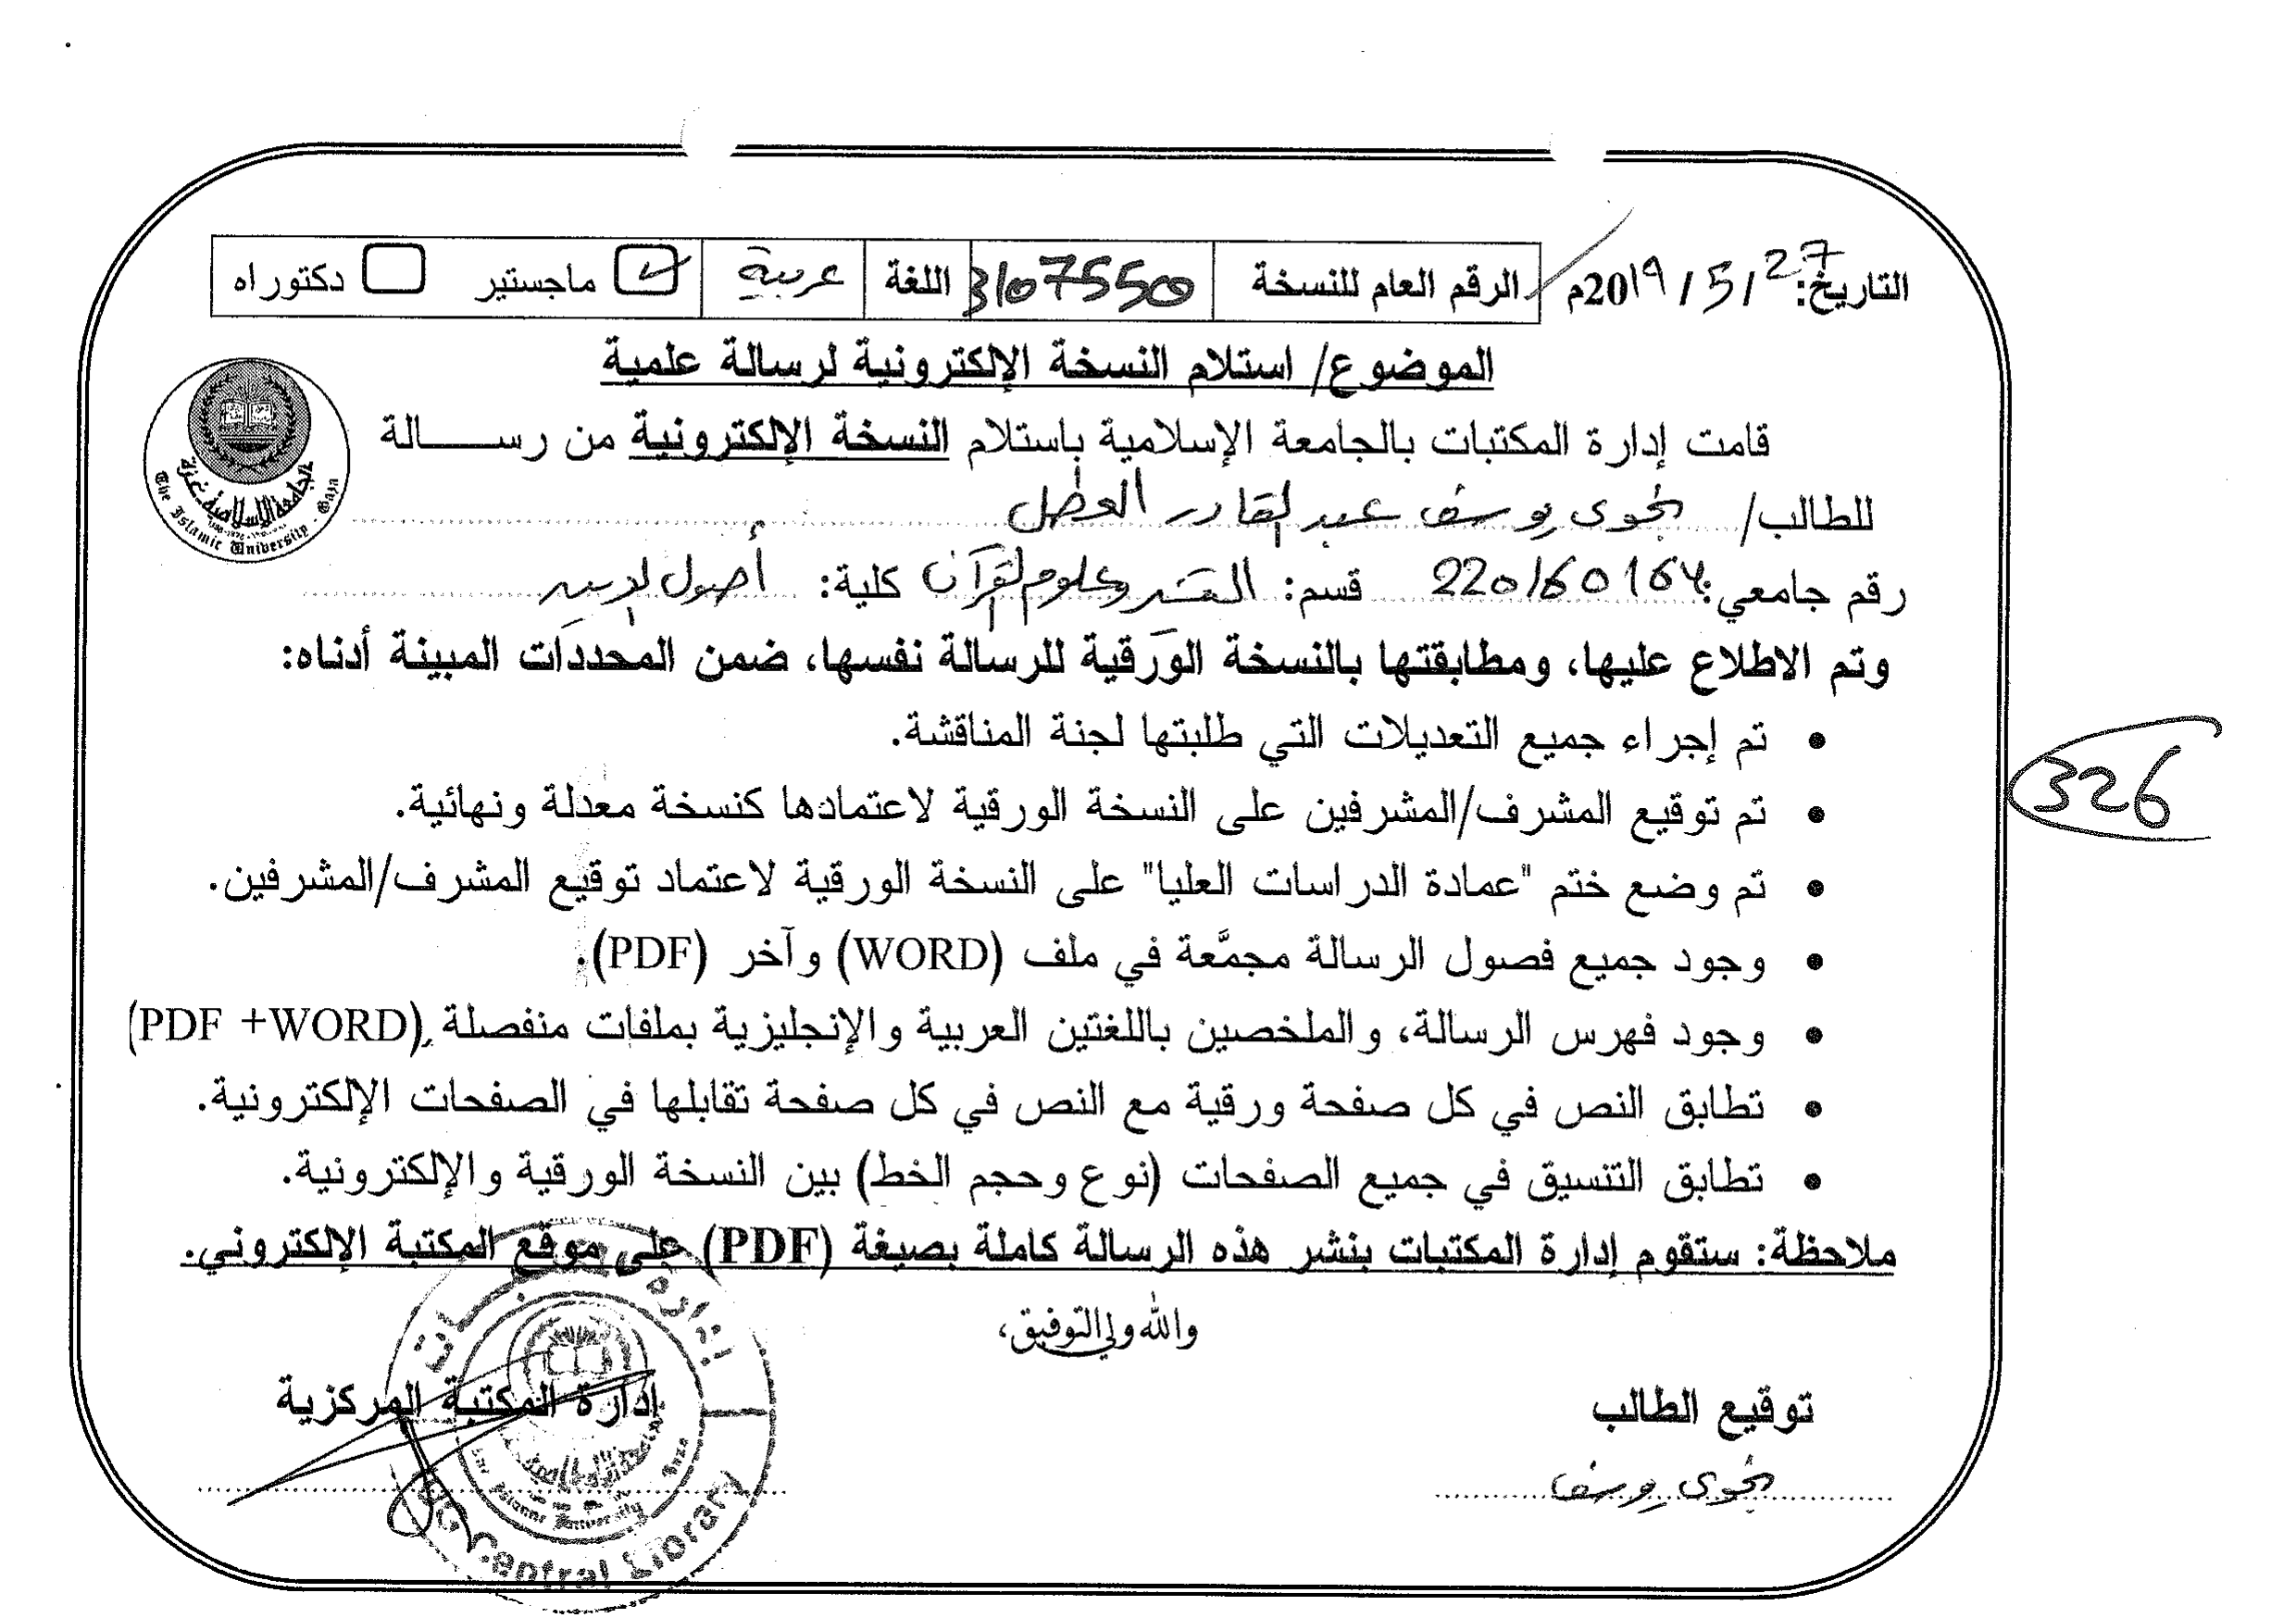 التاريخ: 27 / 5 / 2019م الرقم العام للنسخة 3107550 اللغة عربية ماجستير دكتوراه
الموضوع/ استلام النسخة الإلكترونية لرسالة علمية
قامت إدارة المكتبات بالجامعة الإسلامية باستلام النسخة الإلكترونية من رسالة
للطالب/ نجوى يوسف عبد القادر العطل
رقم جامعي: قسم: التفسير وعلوم القرآن كلية: أصول الدين
وتم الاطلاع عليها، ومطابقتها بالنسخة الورقية للرسالة نفسها، ضمن المحددات المبينة أدناه:
• تم إجراء جميع التعديلات التي طلبتها لجنة المناقشة.
326
• تم توقيع المشرف/المشرفين على النسخة الورقية لاعتمادها كنسخة معدلة ونهائية.
• تم وضع ختم "عمادة الدراسات العليا" على النسخة الورقية لاعتماد توقيع المشرف/المشرفين.
• وجود جميع فصول الرسالة مجمَّعة في ملف (WORD) وآخر (PDF).
• وجود فهرس الرسالة، والملخصين باللغتين العربية والإنجليزية بملفات منفصلة (PDF +WORD)
• تطابق النص في كل صفحة ورقية مع النص في كل صفحة تقابلها في الصفحات الإلكترونية.
• تطابق التنسيق في جميع الصفحات (نوع وحجم الخط) بين النسخة الورقية والإلكترونية.
ملاحظة: ستقوم إدارة المكتبات بنشر هذه الرسالة كاملة بصيغة (PDF) على موقع المكتبة الإلكتروني.
والله ولي التوفيق،
توقيع الطالب إدارة المكتبة المركزية
نجوى يوسف
الجامعة الإسلامية غزة
The Islamic University - Gaza
Central Library